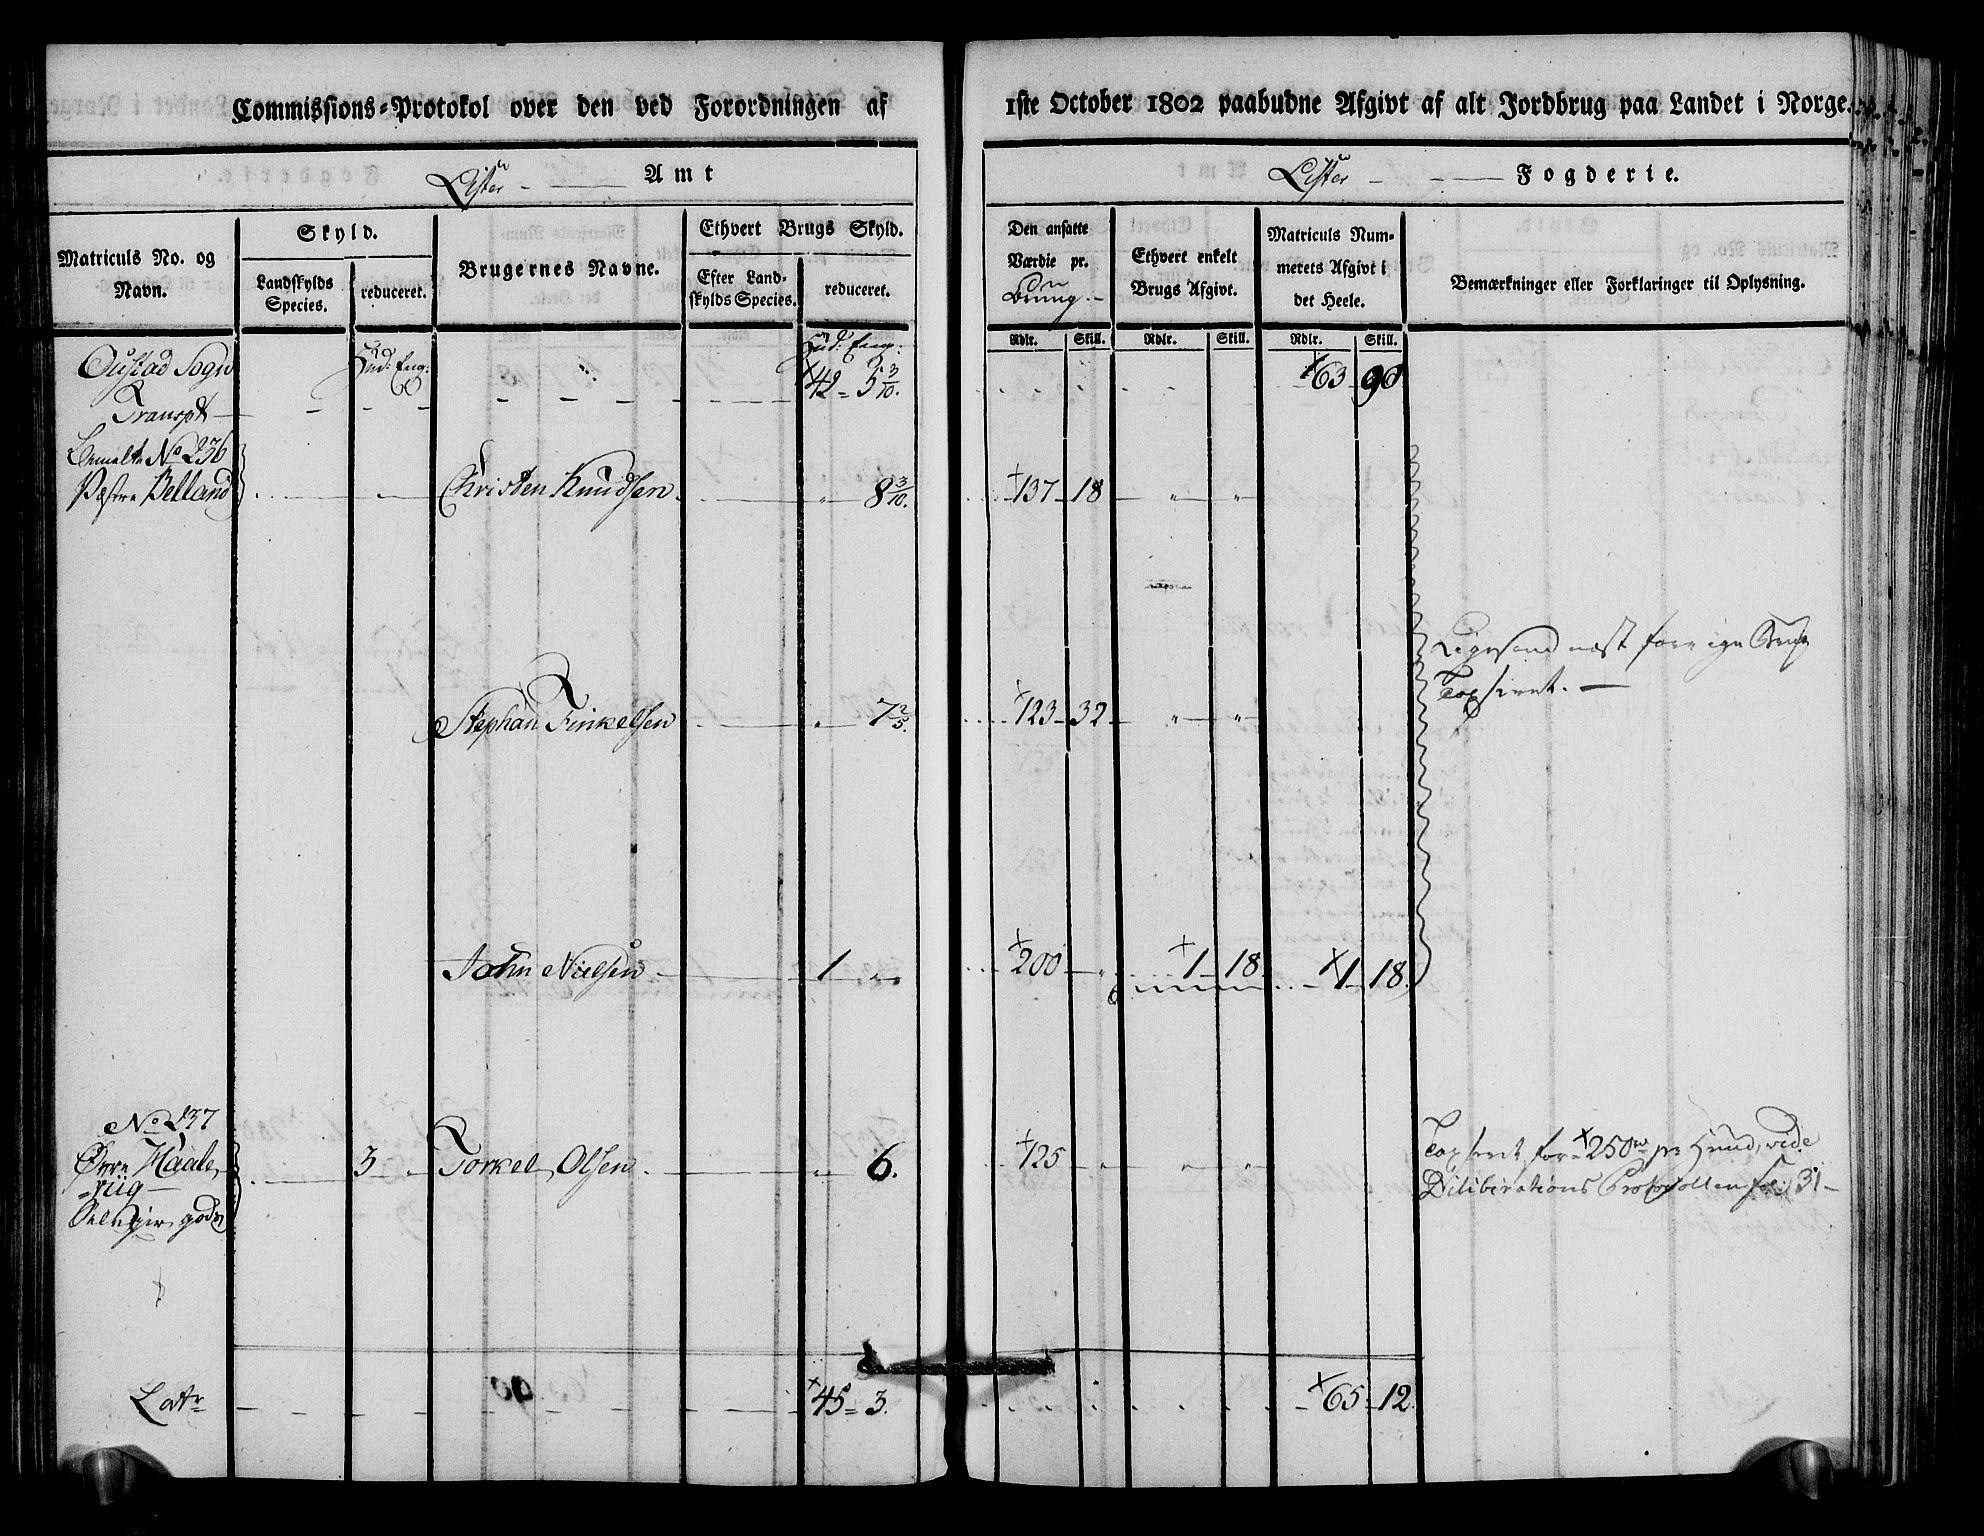 Commissions-Protokol over den ved Forordningen af 1ste October 1802 paabudne Afgivt af alt Jordbrug paa Landet i Norge.
Lister Amt
Lister Fogderie.
Matriculs No. og Navn.
Skyld.
Landskylds Species.
reduceret.
Brugernes Navne.
Ethvert Brugs Skyld.
Efter Landskylds Species.
reduceret.
Den ansatte Værdie pr.
Ethvert enkelt Brugs Afgivt.
Matriculs Nummerets Afgivt i det Heele.
Bemærkninger eller Forklaringer til Oplysning.
Rdlr. Skill. Rdlr. Skill. Rdlr. Skill.
Hud: Eng:
Hud: Eng:
Sogn
Transpt 42 = 5 3/10. 63 90
No 236
Belland Christen Knudsen 8 3/10. 137 18 " "
Ligesom næst forrige
Taxeret.
Stephan Tinkelsen " 7 2/5. 123 32 " "
John Nielsen 1 " 200 " 1 18 1 18.
No 237
Øvre Haale
viig 3 " Torkel Olsen " 6. 125 " " "
godz
Taxeret for 250 pr Huud, vide
Deliberations Protocollen fol: 31
Latr 45 = 3. 65 12.